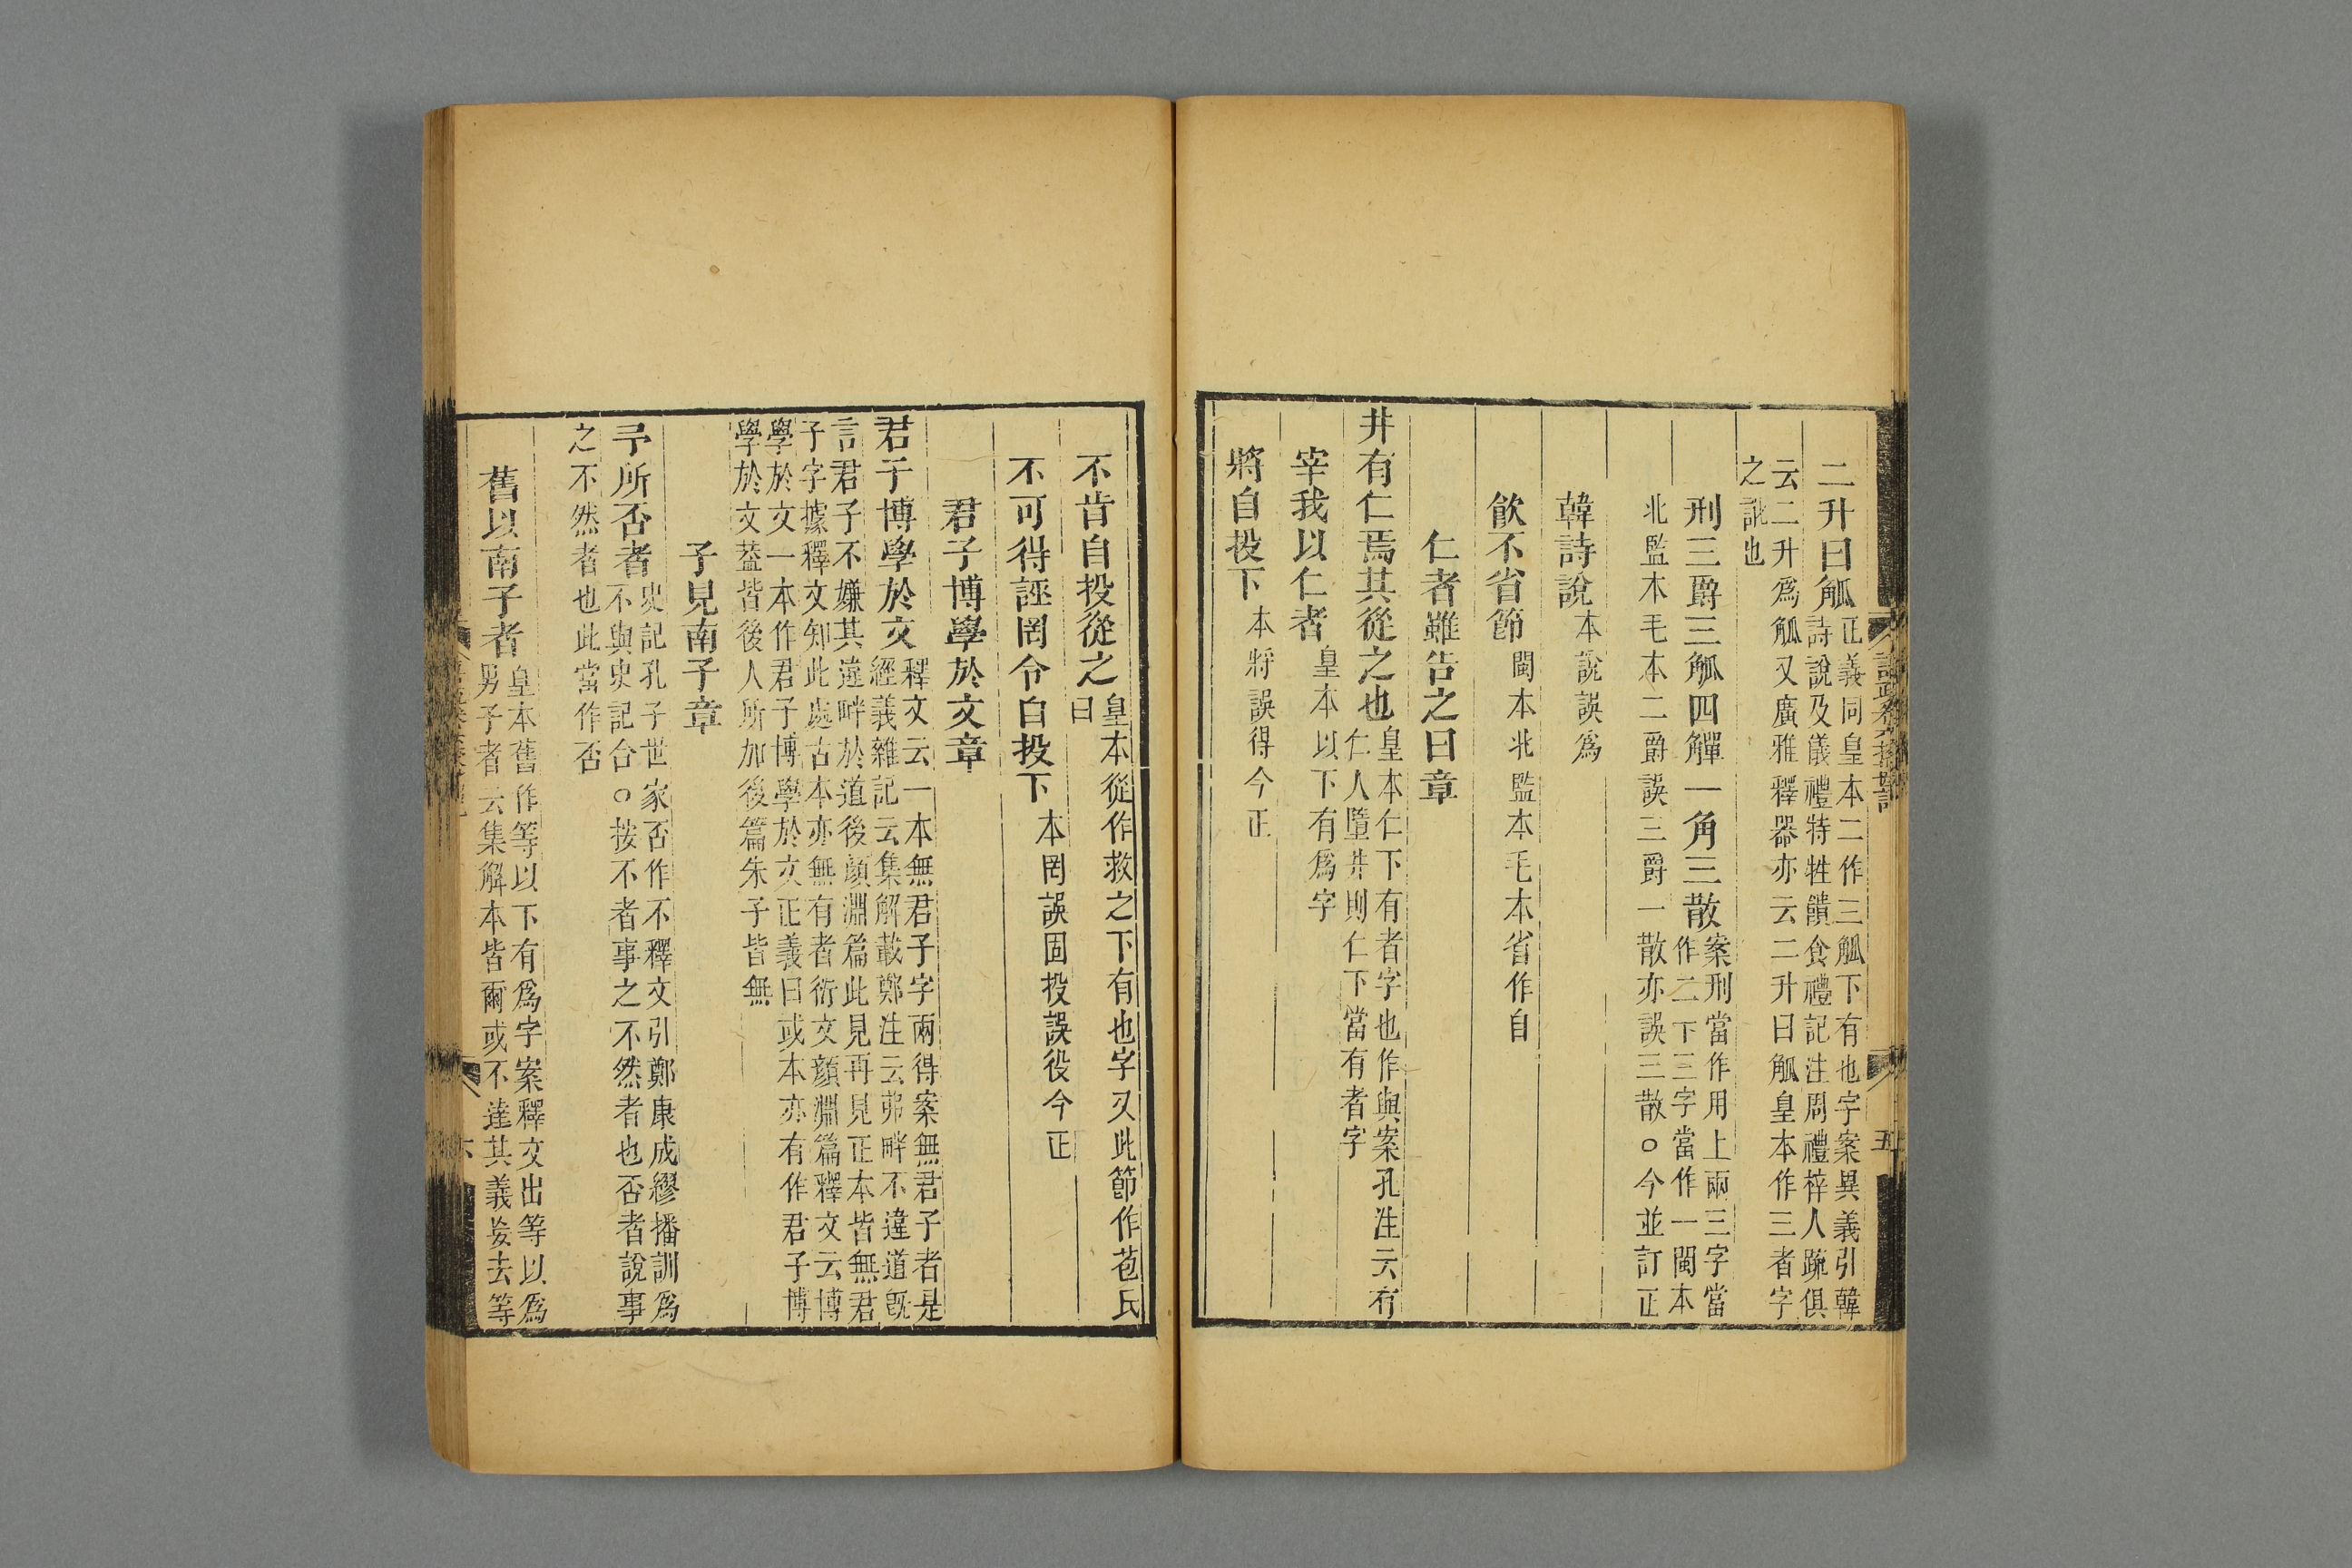 二升曰觚正義同皇本二作三觚下有也字案異義引韓
詩說及儀禮特牲饋食禮記注周禮梓人疏俱
云二升爲觚又廣雅釋器亦云二升曰觚皇本作三者字
之訛也
刑三爵三觚四觶一角三散案刑當作用上兩三字當
作二下三字當作一閩本
北監本毛本二爵誤三爵一散亦誤三散○今並訂正
韓詩說本說誤爲
飲不省節閩本北監本毛本省作自
仁者雖告之曰章
井有仁焉其從之也皇本仁下有者字也作與案孔注云有
仁人墮井則仁下當有者字
宰我以仁者皇本以下有爲字
將自投下本將誤得今正
五
不肯自投從之皇本從作救之下有也字又此節作苞氏
曰
不可得誣罔令自投下本罔誤固投誤役今正
君子博學於文章
君子博學於文釋文云一本無君子字兩得案無君子者是
經義雜記云集解載鄭注云弗畔不違道既
言君子不嫌其違畔於道後顏淵篇此見再見正本皆無君
子字據釋文知此處古本亦無有者衍文顏淵篇釋文云博
學於文一本作君子博學於文正義曰或本亦有作君子博
學於文葢皆後人所加後篇朱子皆無
子見南子章
予所否者史記孔子世家否作不釋文引鄭康成繆播訓爲
不與史記合○按不者事之不然者也否者說事
之不然者也此當作否
舊以南子者皇本舊作等以下有爲字案釋文出等以爲
男子者云集解本皆爾或不達其義妄去等
六